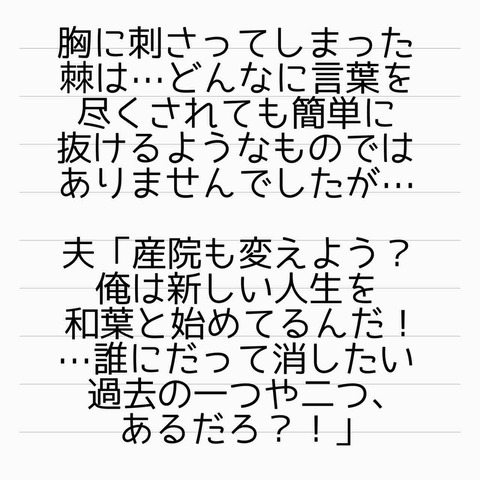 胸に刺さってしまった
棘は…どんなに言葉を
尽くされても簡単に
抜けるようなものでは
ありませんでしたが…
夫「産院も変えよう？
俺は新しい人生を
和葉と始めてるんだ！
…誰にだって消したい
過去の一つや二つ、
あるだろ？！」